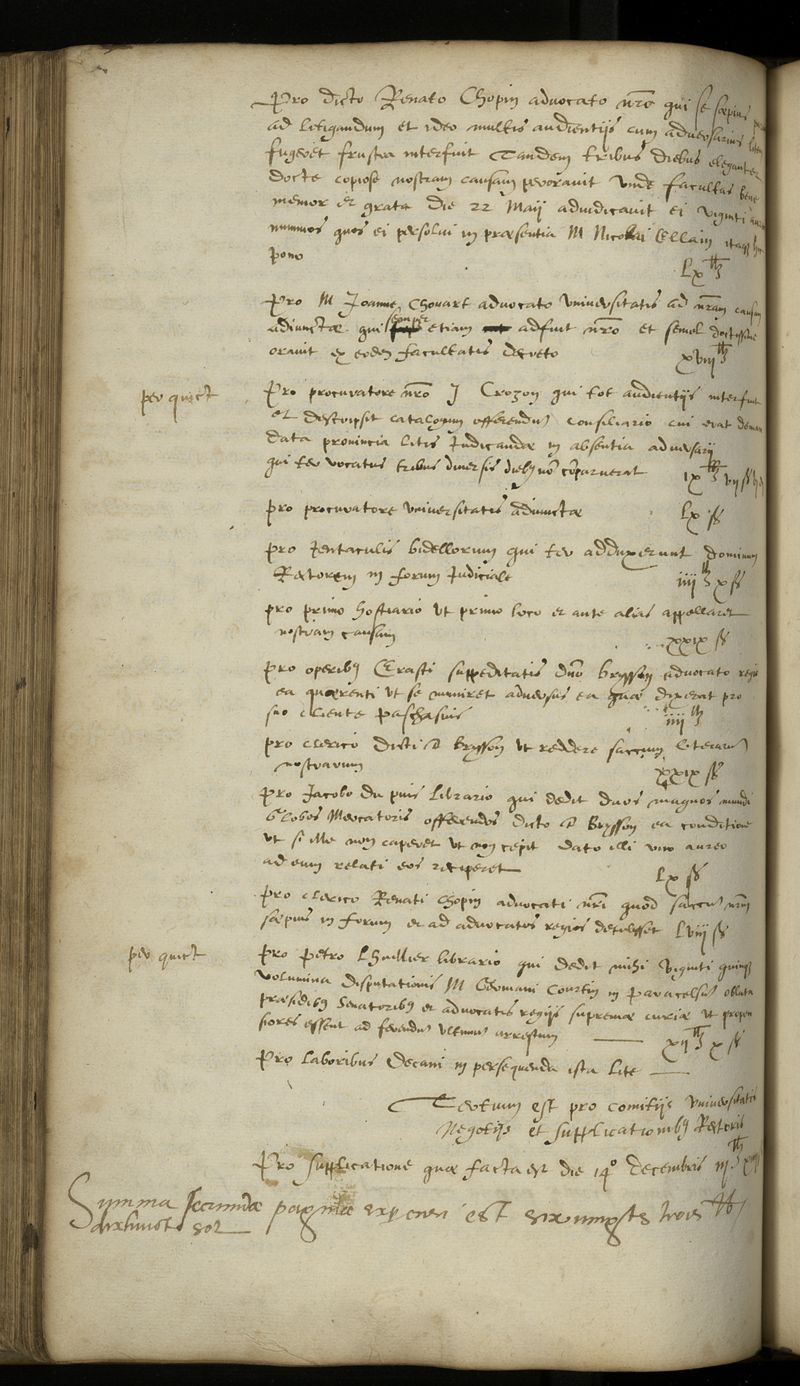 Pro dicto Renato Chopin advocato nr̃o qui se sæpius
ad litigandum et ideo multis audientijs cum adversarius
fugeret frustra interfuit Tandem tribus diebus eleganter
docte copiose nostram causam peroravit Unde facultas bene
memor et grata die 22 Maij adiudicavit ei viginti
nummos quos ei persolui in præsentia M Nicolai Ellain itaq
pono
Lx ℔
Pro M Joanne Chouart advocato Universitatis ad nr̃am causam
adiunctæ qui semper etiam adfuit nr̃o et semel doctissime
oravit ex eodem facultatis decreto xviij ℔
per quict
Pro procuratore nr̃o J Crozon qui tot audientijs interfuit
et descripsit catalogum offerendus Consiliario cui erat
data provincia litis Judicandæ in absentia adversarij
qui ter vocatus tribus diversis dieb9 nõ cõparuerat ix ℔ vij ß
pro procuratore Universitatis adiunctæ Lx ß
pro Jentaculis bidellorum qui ter adduxerunt dominum
Rectorem in forum Judiciale iiij ℔ x ß
pro primo hostiario ut primo loco et ante alias appellaret
nostram causam xxix ß
pro operib9 Erasti suppeditatis dño brysson advocato regio
ea quærenti ut se muniret adversus ea quæ dixerat pro
suo cliente Paschasius iiij ℔
pro clerico dicti D Brysson ut redderet saccum literarum
nostrarum xxix ß
pro Jacobo du puis librario qui dedit duos magnos mundi
Globos Mercatoris offerendos dicto D Brysson ea conditione
ut si ille non caperet ut non cepit dato illi uno aureo
ad eum relati eos reciperet Lx ß
pro clerico Renati Chopin advocati nr̃i quod saccus nr̃m
sæpius in forum et ad advocatos regios detulisset Lviij ß
per quict
pro petro L'huillier librario qui dedit mihi viginti quinq
volumina disputationis M Germani Courtin in paracelsum oblata
præsidib9 Senatorib9 et advocatis regijs supremæ curiæ ut propen
siores essent ad ferendum ultimum arrestum xij ℔ x ß
Pro laboribus Decani in persequenda ista lite
Tertium est pro comitijs Universitatis
Negotijs et supplicationib9 Rectoris
Pro supplicatione quæ facta est die 14º decembris
Summa secundæ paginæ expensi est six vingts trois ℔
dixhuict sol